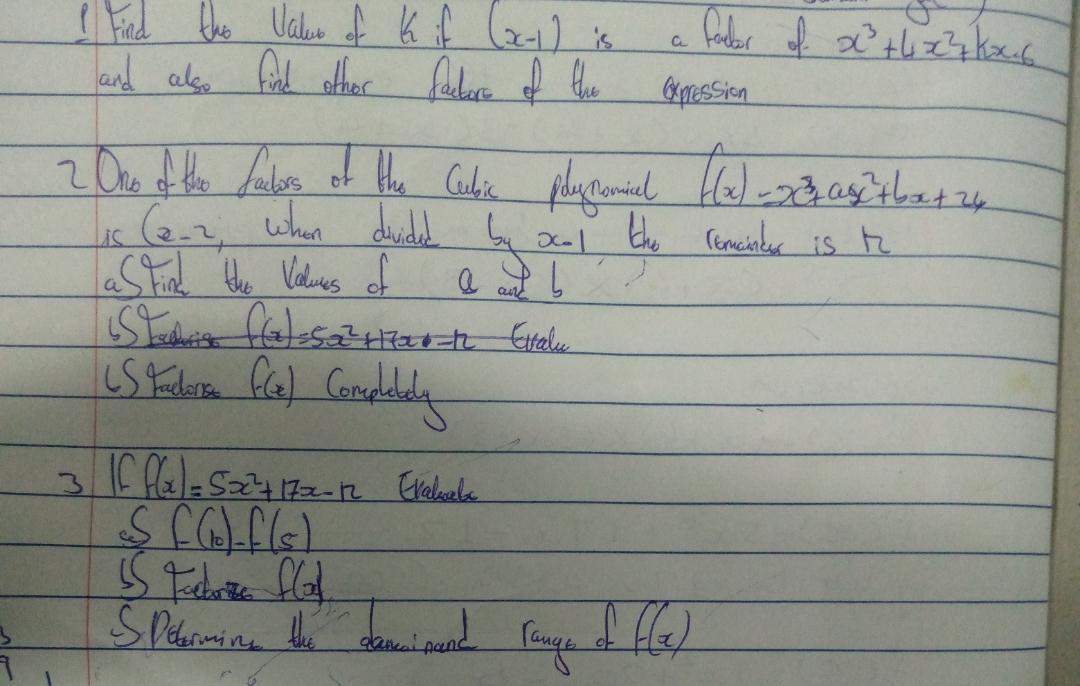 1 Find the Value of K if (x-1) is a factor of x³+4x²+Kx-6
and also find other factors of the expression
2 One of the factors of the Cubic polynomial f(x) = x³+ax²+bx+24
is (x-2, when divided by x-1 the remainder is 12
a) Find the Values of a and b
b) Factorise f(x)=5x²+17x-12 Evalu
b) Factorise f(x) Completely
3 If f(x)=5x²+17x-12 Evaluate
a) f(10)-f(5)
b) Factorize f(x)
Determine the domain and range of f(x)